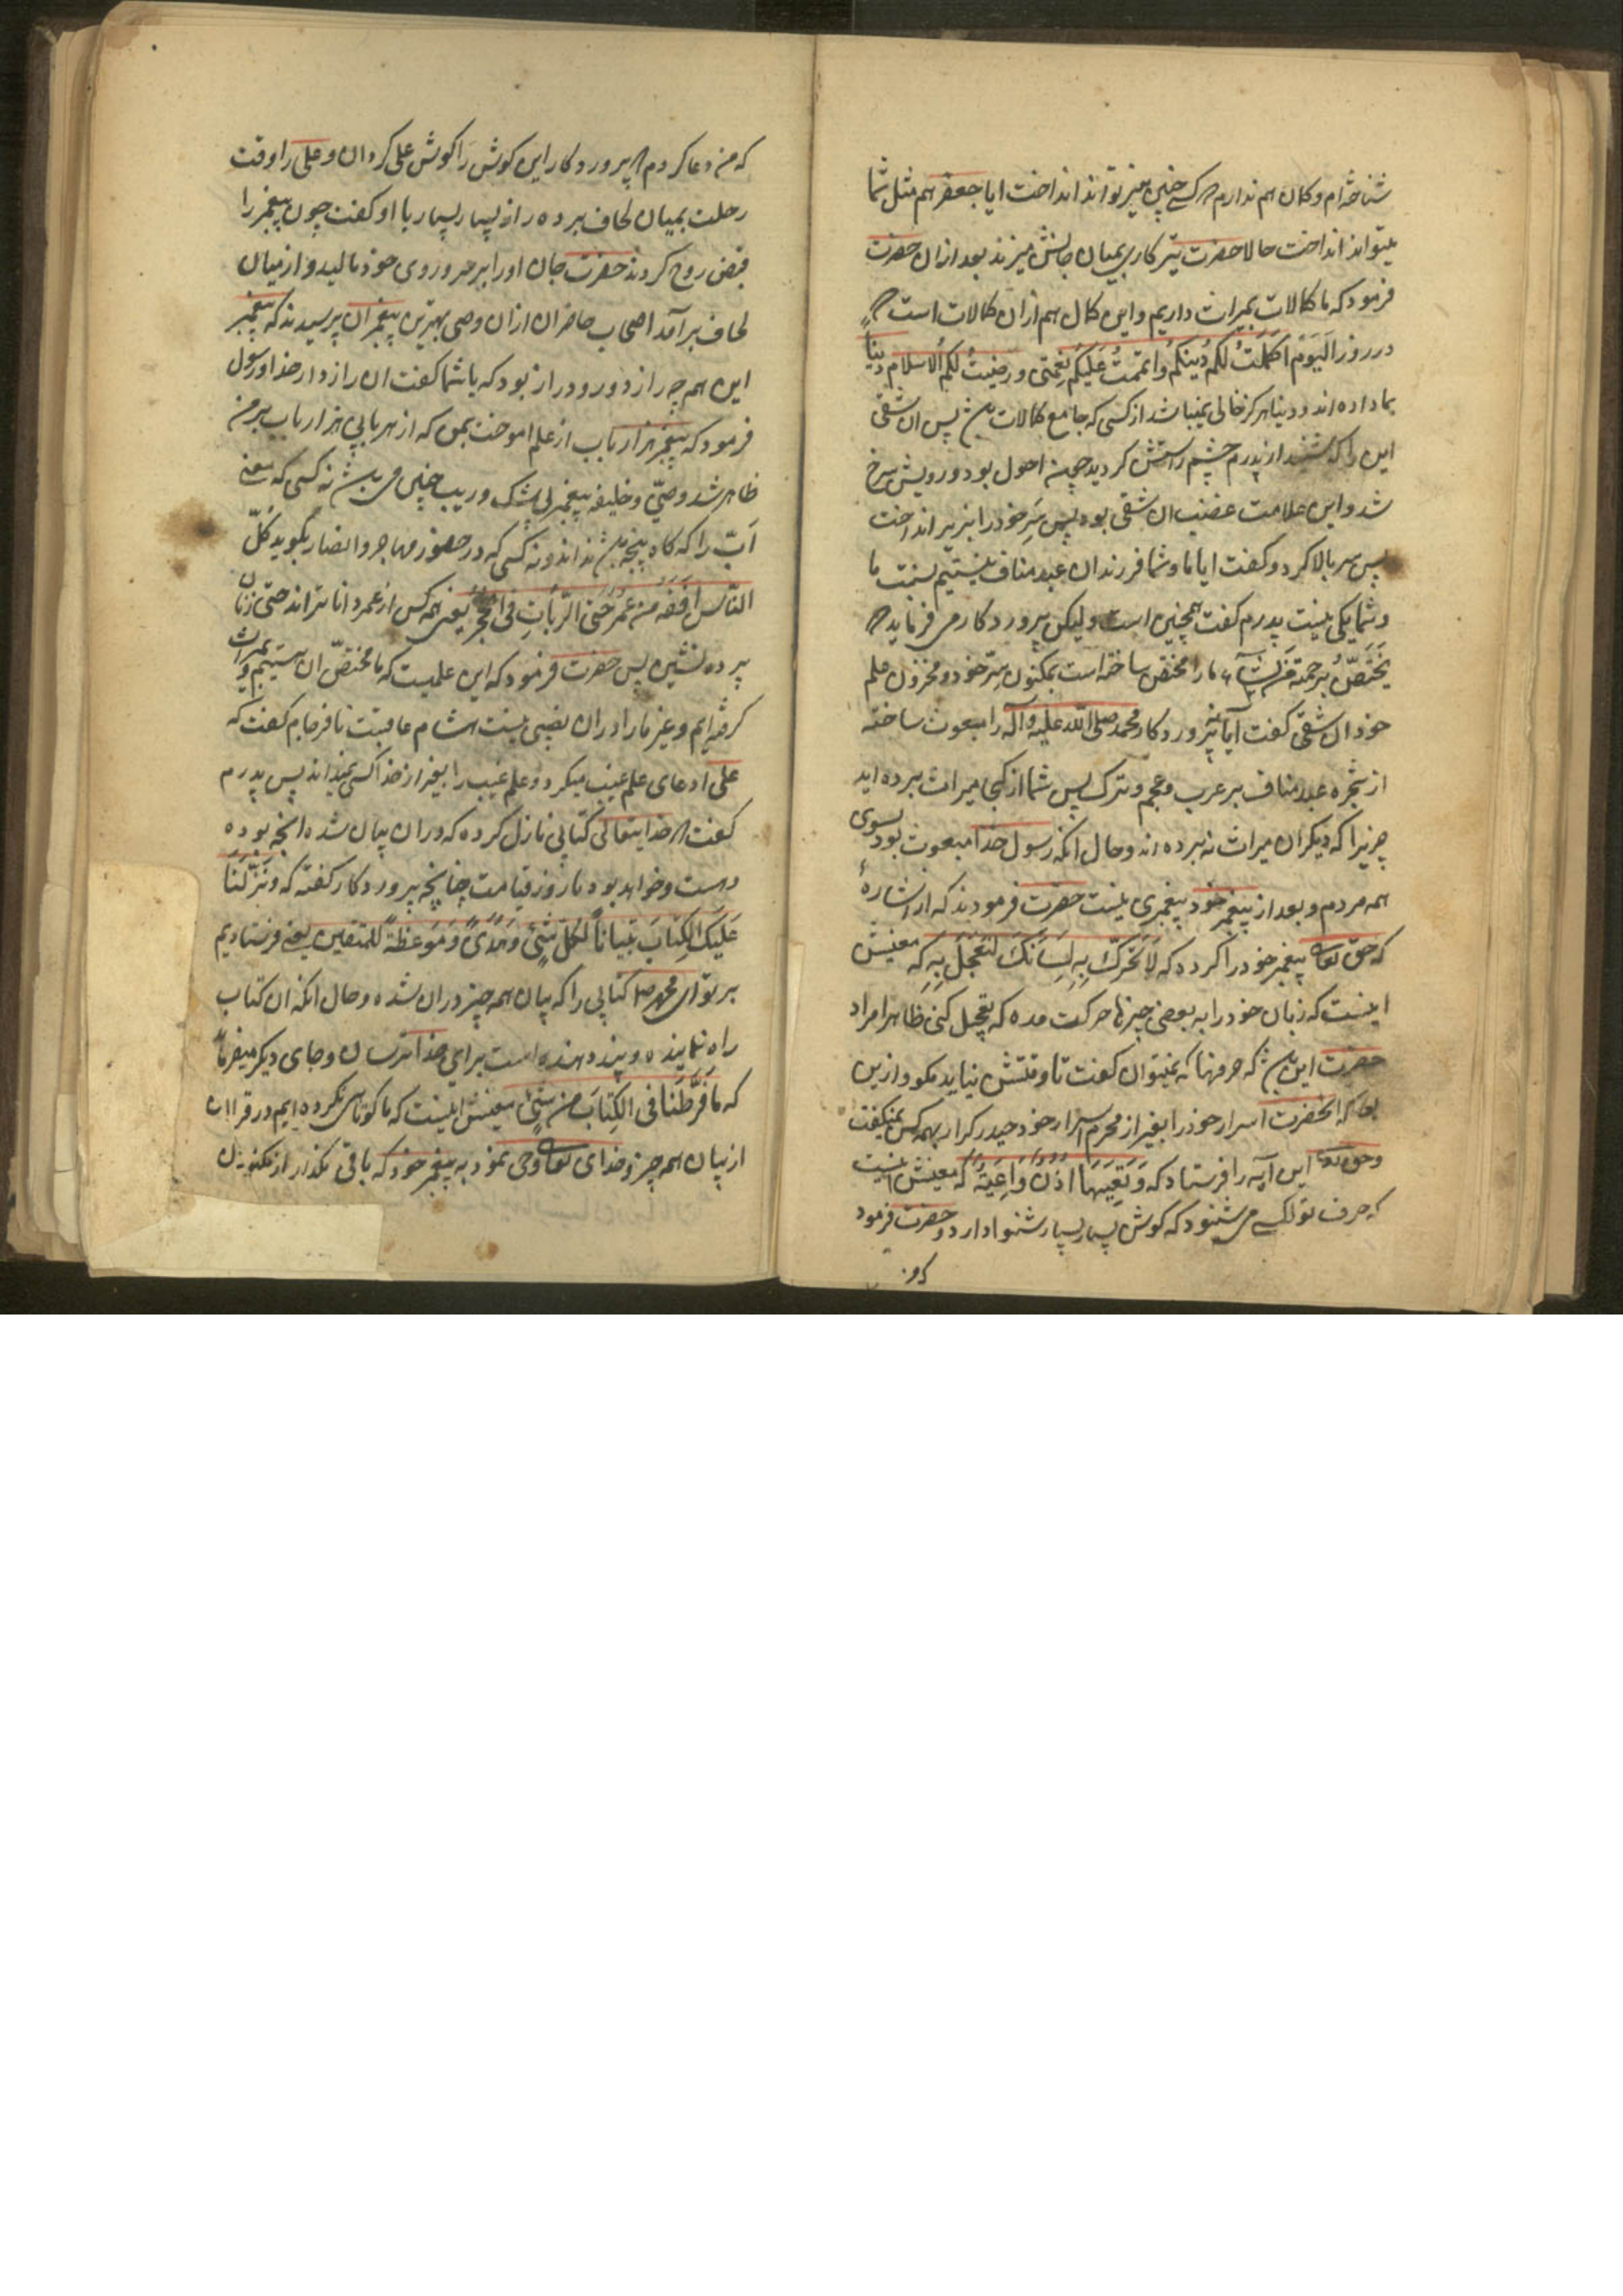 شناخته‌ام و کمان هم ندارم که کسی چنین تیر تواند انداخت ایا جعفر هم مثل شما
میتواند انداخت حالا حضرت تیر کاری بمیان جانش میزند بعد ازان حضرت
فرمود که ما کمالات بمیراث داریم و این کمال هم ازان کمالات است که
در روز اَلیَوْمَ اَکمَلتُ لَکُم دُینَکُم وَاَتمَمتُ عَلَیکُم نِعْمَتی و رَضیتُ لَکُم الاسلام دینا
بما داده‌اند و دنیا هرکز خالی نمیباشد از کسی که جامع کمالات باشد پس ان شقی
این را که شنید از پدرم چشم راستش کردید چون احول بود و رویش سرخ
شد و این علامت غضب ان شقی بود پس سَرِ خود را بزیر انداخت
پس سر بالا کرد و کفت ایا ما و شما فرزندان عبد مناف نیستیم نسبت ما
و شما یکی نیست پدرم کفت همچنین است ولیکن پرورد کار می فرماید که
یَخْتَصُّ بِرَحمَتِه مَن یشآء ما را مختص ساخته است بمکنون سِرّ خود و مخزون علم
خود ان شقی کفت آیا نه پرورد کار محمد صلی الله علیه و آله را مبعوث ساخته
از شجره عبد مناف بر عرب و عجم و ترک پس شما از کجا میراث برده‌اید
چیزیرا که دیکران میراث نه برده‌اند و حال انکه رسول خدا مبعوث بود بسوی
همه مردم و بعد از پیغمبر خود پیغمبری نیست حضرت فرمودند که از اشارهٔ
که حق تعالی پیغمبر خود را کرد که لاَ تُحَرِّک بِهِ لِسَانَکَ لِتَعْجَلَ بِهِ که معنیش
اینست که زبان خود را به بعضی چیزها حرکت مده که تعجیل کنی ظاهرا مراد
حضرت این باشد که حرفها که نمیتوان کفت تا وقتش نیاید مکو و ازین
که انحضرت اسرار خود را بغیر از محرم اسرار خود حیدر کرار بهمه کس نمیکفت
و حق تعالی این آیه را فرستاد که وَ تَعِیَهَا اُذُنٌ وَاعِیَةٌ که معنیش اینست
که حرف تو کسی می شنود که کوش بسیار بسیار شنوا دارد و حضرت فرمود
که من دعا کردم که پرورد کار این کوش را کوش علی کردان و علی را وقت
رحلت بمیان لحاف برده راز بسیار بسیار با او کفت چون پیغمبر را
قبض روح کردند حضرت جان او را بر سر و روی خود مالید و از میان
لحاف برآمد اصحاب حاضران ازان وصی بهترین پیغمبران پرسیدند که پیغمبر
این همه چه راز دور و دراز بود که با شما کفت ان راز دار خدا و رسول
فرمود که پیغمبر هزار باب از علم اموخت بمن که از هر بابی هزار باب بر من
ظاهر شد و صیّ و خلیفه پیغمبر بی شک و ریب چنین می باشد نه کسی که معنی
اَبّ را که کاه پنجه باشد نداند و نه کسی که در حضور مهاجر و انصار بکوید کُلُّ
النّاس اَفقَهُ من عُمَر حَتّی الرّبّات فی الحِجَر یعنی همه کس از عمر داناتراند حتی زنان
پرده نشین پس حضرت فرمود که این علمیست که ما مختصّ ان هستیم و بمیراث
کرفته‌ایم و غیر ما را دران نصیبی نیست هشام عاقبت نافرجام کفت که
علی ادعای علم غیب میکرد و علم غیب را بغیر از خدا کسی نمیداند پس پدرم
کفت که خدایتعالی کتابی نازل کرده که دران بیان شده انچه بوده
و هست و خواهد بود تا روز قیامت چنانچه پرورد کار کفته که وَنَزَّلنَا
عَلَیکَ الکِتَابَ تِبیَاناً لِکُلِّ شَیْیٍٔ وَ هُدًی وَ مَوعِظَةً لِلمتقین یعنی فرستادیم
بر تو ای محمد ص کتابی را که بیان همه چیز دران شده و حال انکه ان کتاب
راه نماینده و پند دهنده است برای خدا ترسان و جای دیکر میفرماید
که مَا فَرَّطْنَا فی الکِتَابِ مِن شَیئٍ معنیش اینست که ما کوتاهی نکرده‌ایم در قران
از بیان همه چیز و خدای تعالی وحی نمود به پیغمبر خود که باقی نکذار از مکنون